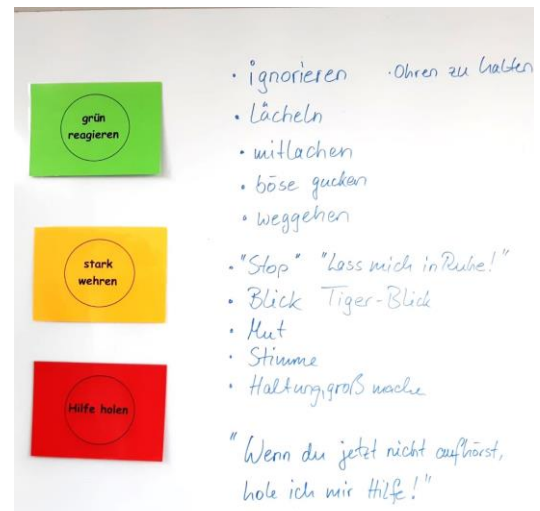 grün
reagieren
• ignorieren • Ohren zu halten
• Lächeln
• mitlachen
• böse gucken
• weggehen
stark
wehren
• "Stop" "Lass mich in Ruhe!"
• Blick Tiger-Blick
• Mut
• Stimme
• Haltung, groß mache
Hilfe holen
"Wenn du jetzt nicht aufhörst,
hole ich mir Hilfe!"